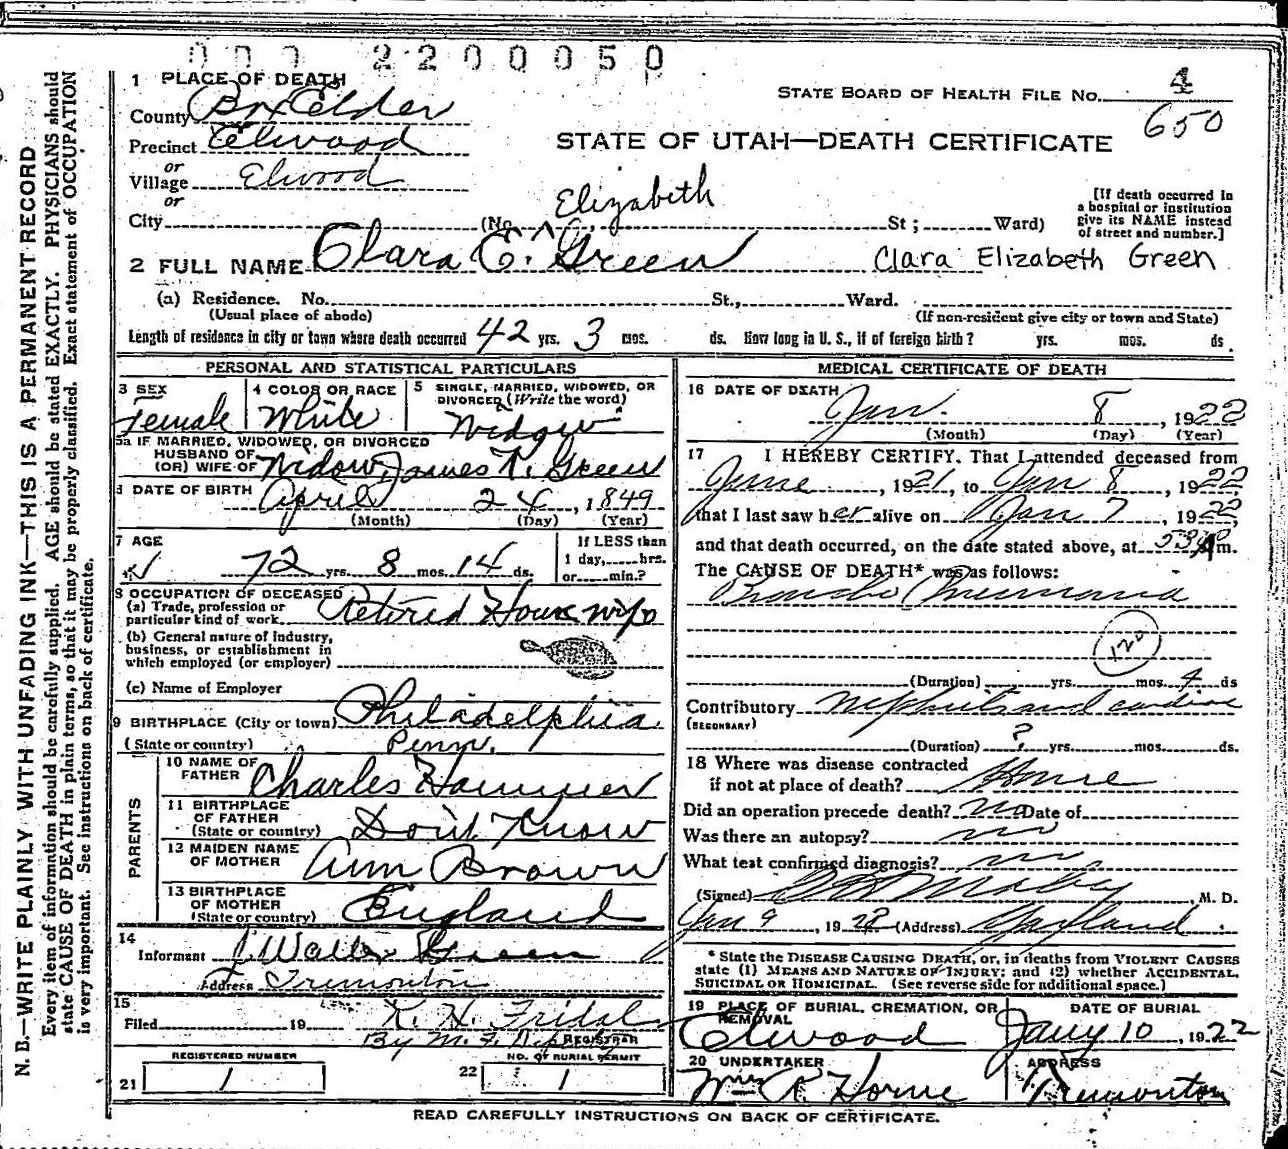 000 2200050
1 PLACE OF DEATH
County Box Elder
STATE BOARD OF HEALTH FILE No. 4
650
Precinct Elwood
STATE OF UTAH—DEATH CERTIFICATE
or
Village Elwood
or
City (No. St; Ward)
Elizabeth
[If death occurred in
a hospital or institution
give its NAME instead
of street and number.]
2 FULL NAME Clara E. ^ Green Clara Elizabeth Green
(a) Residence. No. St., Ward.
(Usual place of abode) (If non-resident give city or town and State)
Length of residence in city or town where death occurred 42 yrs. 3 mos. ds. How long in U. S., if of foreign birth? yrs. mos. ds.
PERSONAL AND STATISTICAL PARTICULARS
3 SEX Female
4 COLOR OR RACE White
5 SINGLE, MARRIED, WIDOWED, OR
DIVORCED (Write the word)
Widow
5a IF MARRIED, WIDOWED, OR DIVORCED
HUSBAND OF
(OR) WIFE OF Widow, James Green
6 DATE OF BIRTH April 24, 1849
(Month) (Day) (Year)
7 AGE
72 yrs. 8 mos. 14 ds.
If LESS than
1 day, hrs.
or min.?
8 OCCUPATION OF DECEASED
(a) Trade, profession or
particular kind of work Retired House wife
(b) General nature of industry,
business, or establishment in
which employed (or employer)
(c) Name of Employer
9 BIRTHPLACE (City or town) Philadelphia
(State or country) Penn.
PARENTS
10 NAME OF
FATHER Charles Hammer
11 BIRTHPLACE
OF FATHER
(State or country) Don't Know
12 MAIDEN NAME
OF MOTHER Ann Brown
13 BIRTHPLACE
OF MOTHER
(State or country) England
14
Informant J. Walter Green
Address Tremonton
15
Filed 19 K. H. Fridal
By M. F. REGISTRAR
REGISTERED NUMBER
21 1
NO. OF BURIAL PERMIT
22 1
MEDICAL CERTIFICATE OF DEATH
16 DATE OF DEATH
Jan. 8, 1922
(Month) (Day) (Year)
17 I HEREBY CERTIFY, That I attended deceased from
June, 1921, to Jan 8, 1922
that I last saw her alive on Jan 7, 1922,
and that death occurred, on the date stated above, at 530 A m.
The CAUSE OF DEATH* was as follows:
Broncho Pneumonia
120
(Duration) yrs. mos. 4 ds
Contributory Nephritis and cardiac
(SECONDARY)
(Duration) ? yrs. mos. ds.
18 Where was disease contracted
if not at place of death? Home
Did an operation precede death? no Date of
Was there an autopsy? no
What test confirmed diagnosis? no
(Signed) Mabey, M. D.
Jan 9, 1922 (Address) Garland
* State the DISEASE CAUSING DEATH, or, in deaths from VIOLENT CAUSES
state (1) MEANS AND NATURE OF INJURY; and (2) whether ACCIDENTAL,
SUICIDAL OR HOMICIDAL. (See reverse side for additional space.)
19 PLACE OF BURIAL, CREMATION, OR
REMOVAL
Elwood
DATE OF BURIAL
Jany 10, 1922
20 UNDERTAKER
Wm R. Horne
ADDRESS
Tremonton
READ CAREFULLY INSTRUCTIONS ON BACK OF CERTIFICATE.
N. B.—WRITE PLAINLY WITH UNFADING INK—THIS IS A PERMANENT RECORD
Every item of information should be carefully supplied. AGE should be stated EXACTLY. PHYSICIANS should
state CAUSE OF DEATH in plain terms, so that it may be properly classified. Exact statement of OCCUPATION
is very important. See instructions on back of certificate.